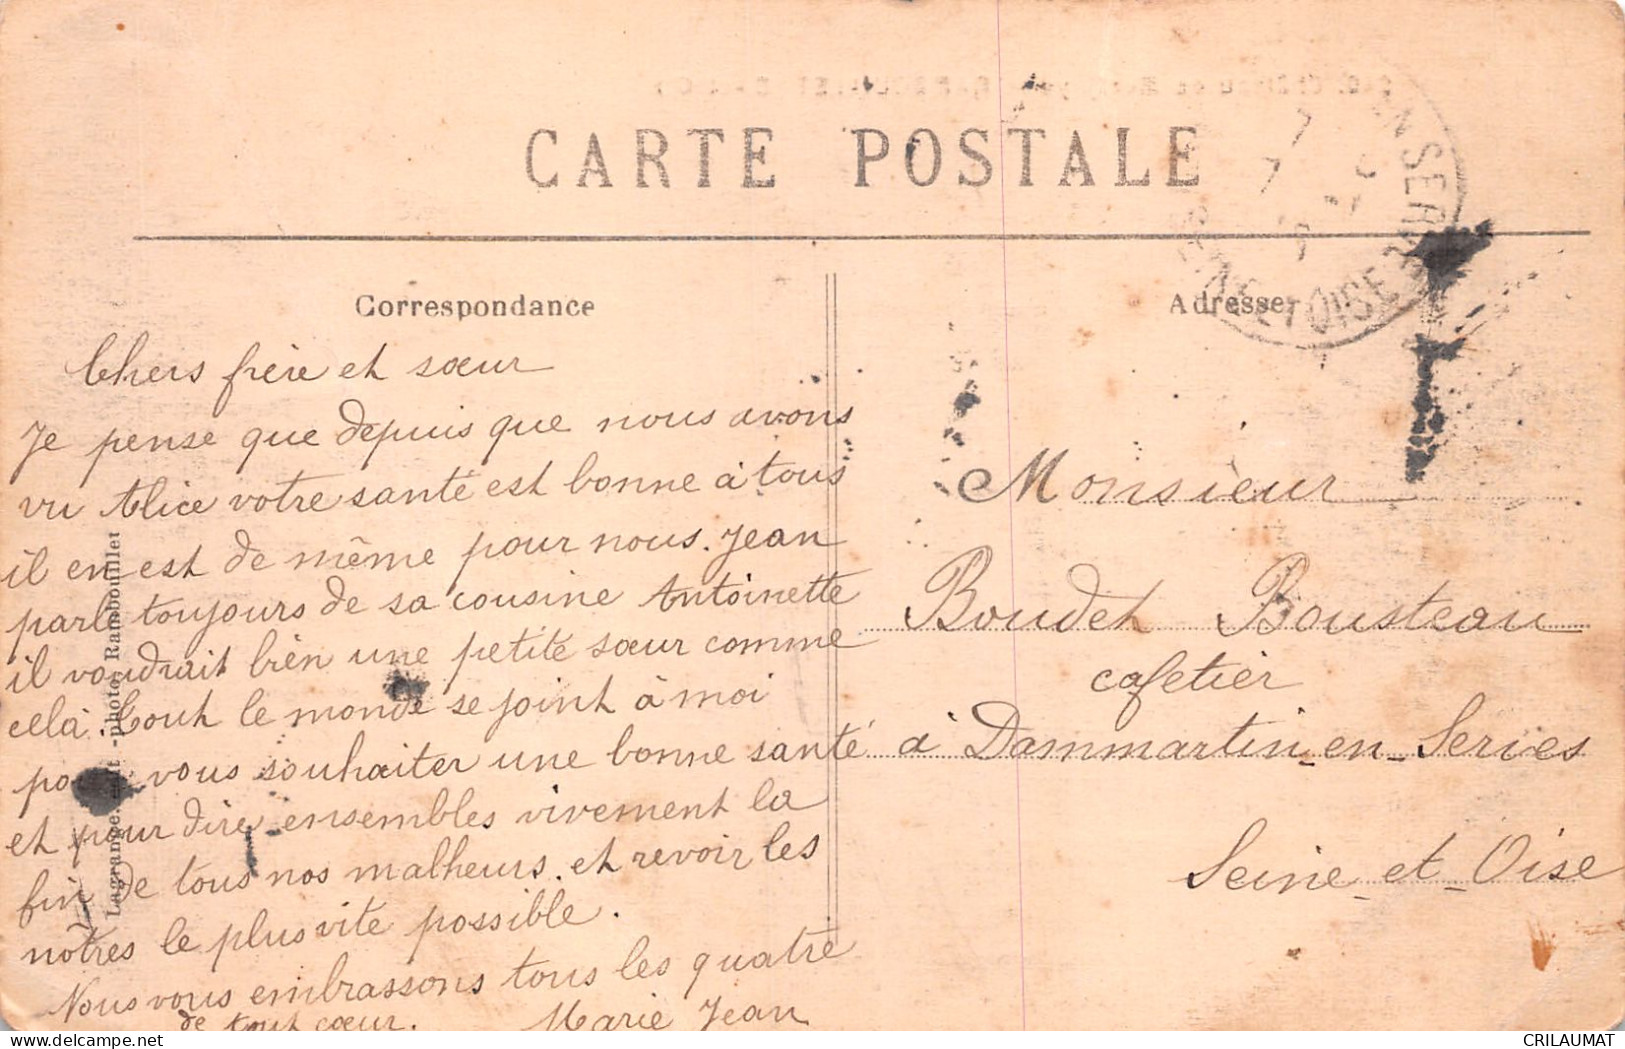 CARTE POSTALE
Correspondance
Adresse
Chers frère et sœur
Je pense que depuis que nous avons
vu Alice votre santé est bonne à tous
il en est de même pour nous. Jean
parle toujours de sa cousine Antoinette
il voudrait bien une petite sœur comme
celà. Tout le monde se joint à moi
vous souhaiter une bonne santé
et pour dire ensembles vivement la
fin de tous nos malheurs. et revoir les
nôtres le plus vite possible.
Nous vous embrassons tous les quatre
de tout cœur. Marie Jean
Monsieur
Boudet Bousteau
cafetier
à Dammartin-en-Serves
Seine-et-Oise
EN SERVE
SEINE-ET-OISE
Lagrange -photo, Rambouillet
CRILAUMAT